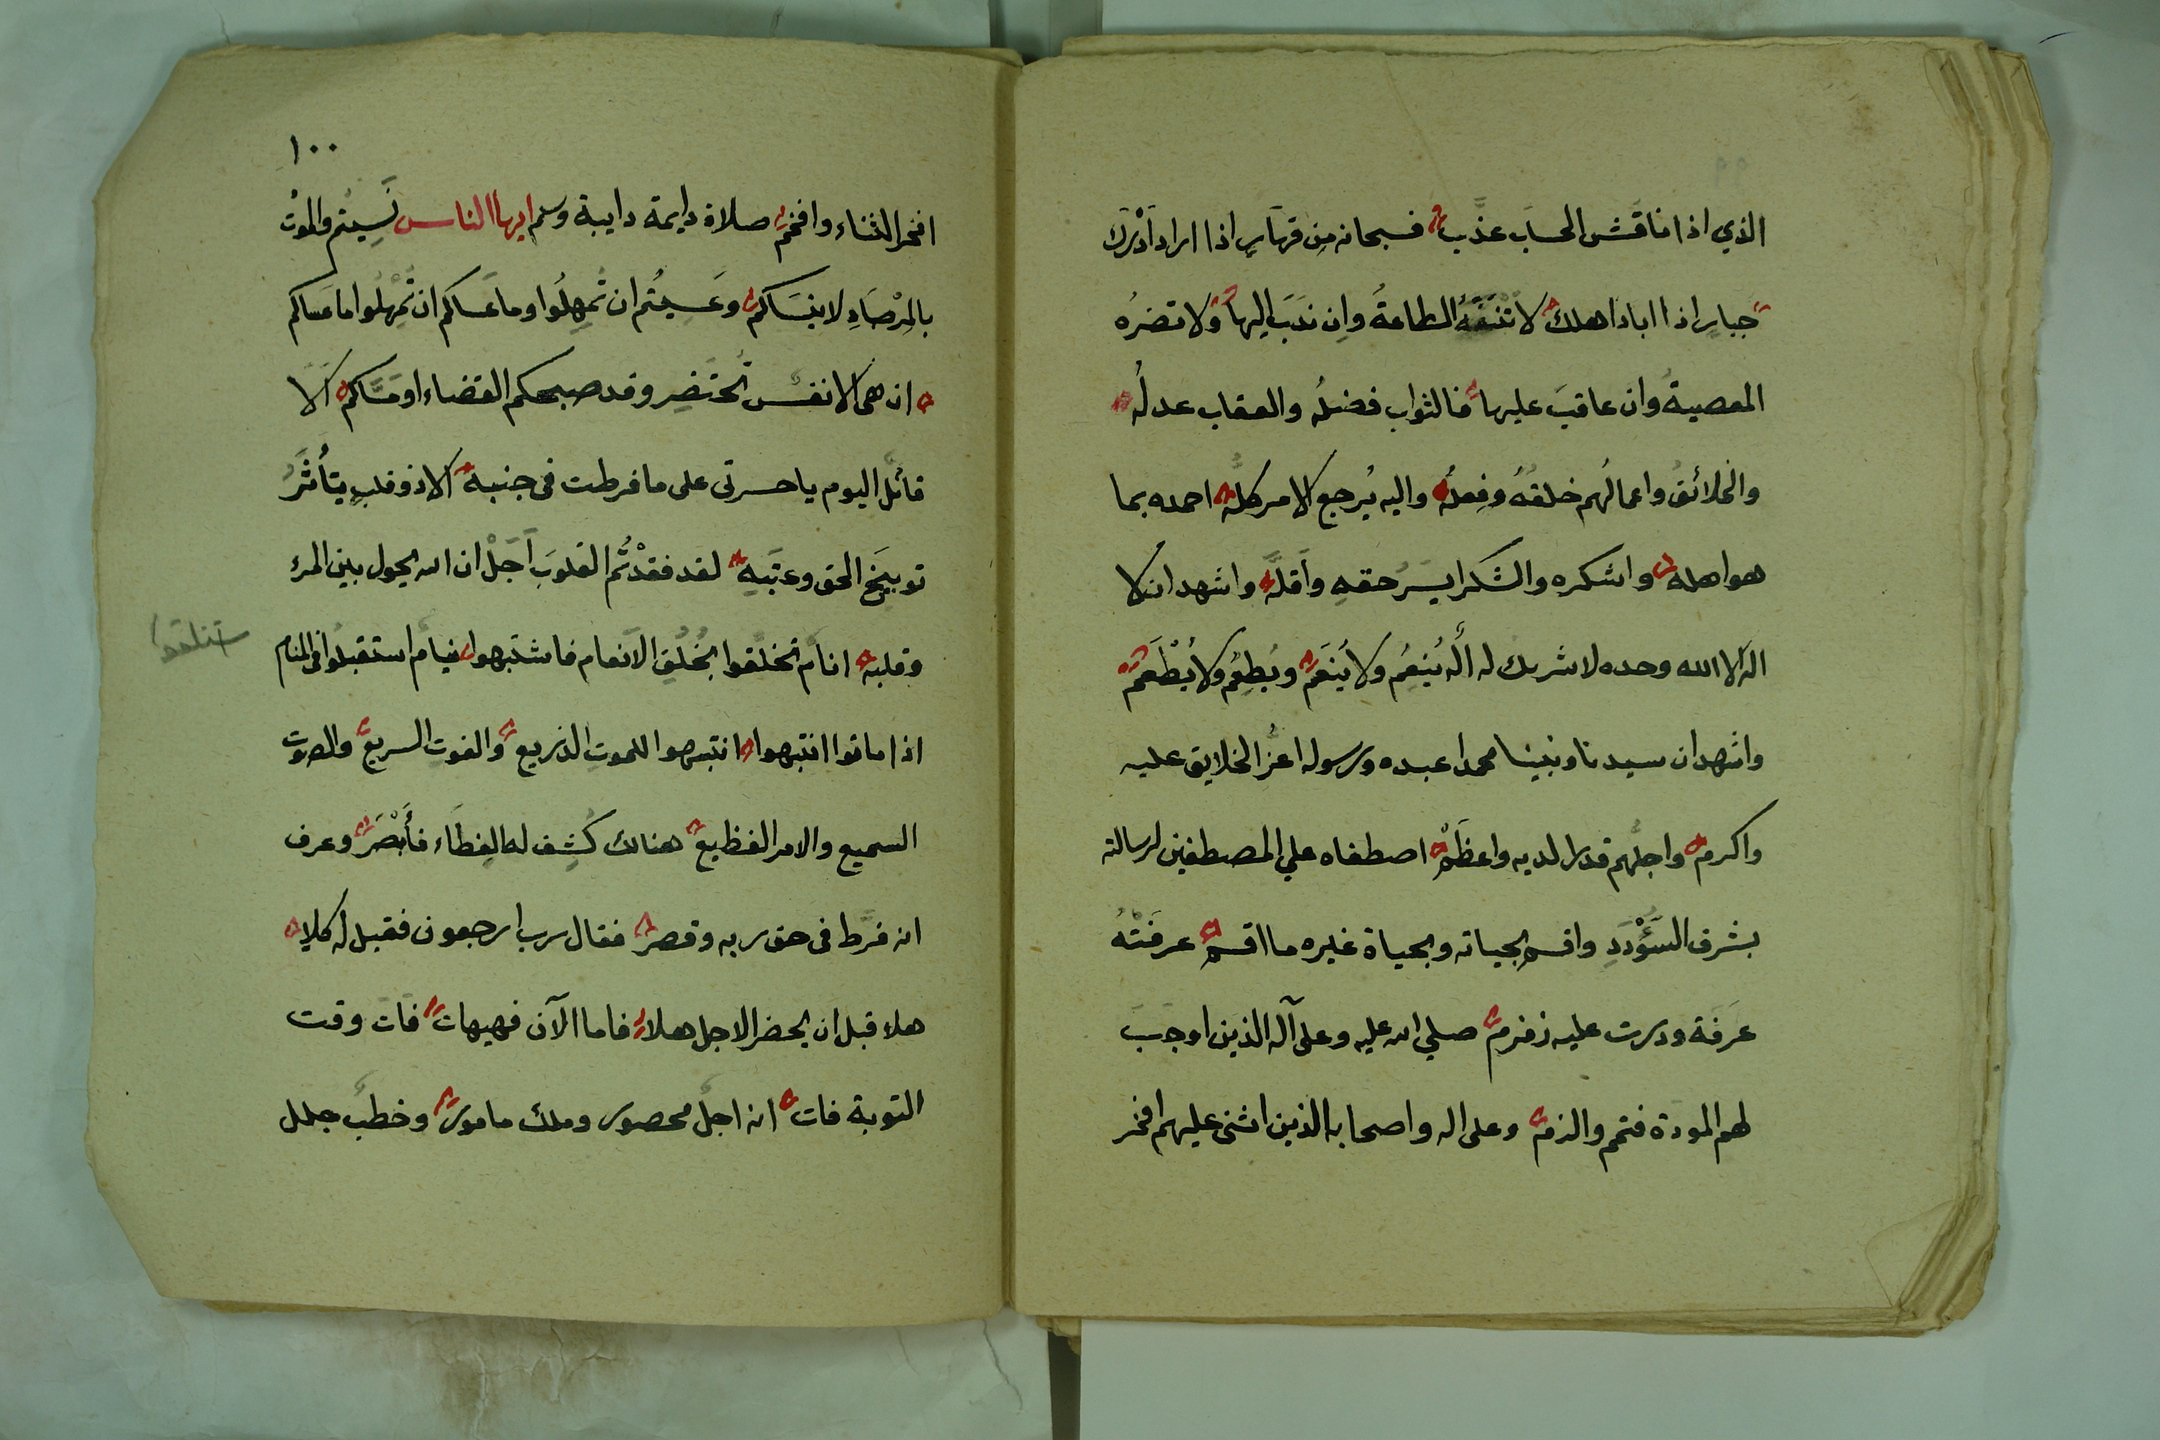 ٩٩
الذي اذا ناقش الحساب عذب فسبحانه من قهار اذا اراد ادرك
جبار اذا اباد اهلك لا تنفعه الطاعة وان ندب اليها ولا تضره
المعصية وان عاقب عليها فالثواب فضله والعقاب عدله
والخلائق واعمالهم خلقه وفعله واليه يرجع الامر كله احمده بما
هو اهله واشكره والشكر ايسر حقه واقله واشهد ان لا
اله الا الله وحده لا شريك له اله ينعم ولا ينعم ويطعم ولا يطعم
واشهد ان سيدنا ونبينا محمدا عبده ورسوله اعز الخلايق عليه
واكرم واجلهم قدرا لديه واعظم اصطفاه علي المصطفين لرسالته
بشرف السؤدد واقسم بحياته وبحياة غيره ما اقسم عرفته
عرفة ودرت عليه زمزم صلي الله عليه وعلى آله الذين اوجب
لهم المودة فتمم والزم وعلى اله واصحابه الذين اثنى عليهم افخر
١٠٠
افخر الثناء وافخم صلاة دايمة دايبة وسلم ايها الناس نسيتم والموت
بالمرصاد لا ينساكم وعسيتم ان تمهلوا وما عساكم ان تمهلوا ما عساكم
ان هى الا نفس تحتضر وقد صبحكم القضاء او مساكم الا
قائل اليوم يا حسرتى على ما فرطت فى جنبه الا ذو قلب يتأثر
توبيخ الحق وعتبه لقد فقدتم القلوب اجل ان الله يحول بين المرء
وقلبه انام تخلقوا بخلق الانعام فاشتبهوا نيام استقبلوا فى المنام
اذا ماتوا انتبهوا انتبهوا للموت الذريع والفوت السريع والصوت
السميع والامر الفظيع هنالك كشف له الغطاء فأبصر وعرف
انه فرط فى حق ربه وقصر فقال رب ارجعون فقيل له كلا
هلا قبل ان يحضر الاجل هلا فاما الآن فهيهات فات وقت
التوبة فات انه اجل محصور وملك مامور وخطب جلل